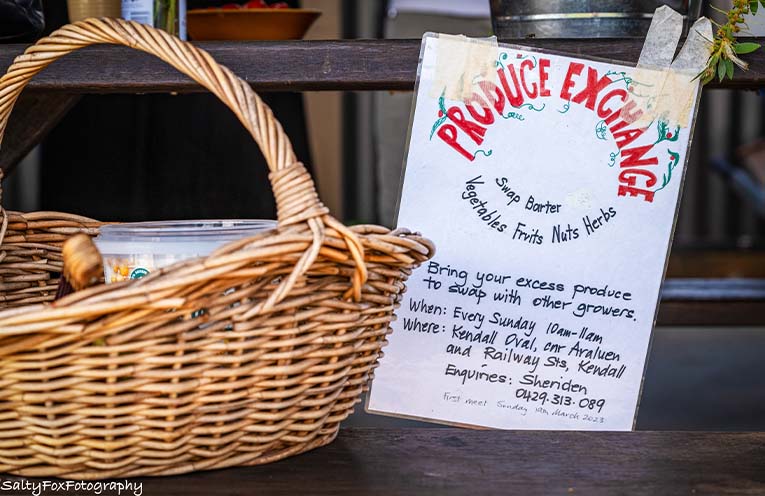 PRODUCE EXCHANGE
Swap Barter
Vegetables Fruits Nuts Herbs
Bring your excess produce
to swap with other growers.
When: Every Sunday 10am-11am
Where: Kendall Oval, cnr Araluen
and Railway Sts, Kendall
Enquiries: Sheriden
0429.313.089
First meet Sunday 19th March 2023
SaltyFoxFotography